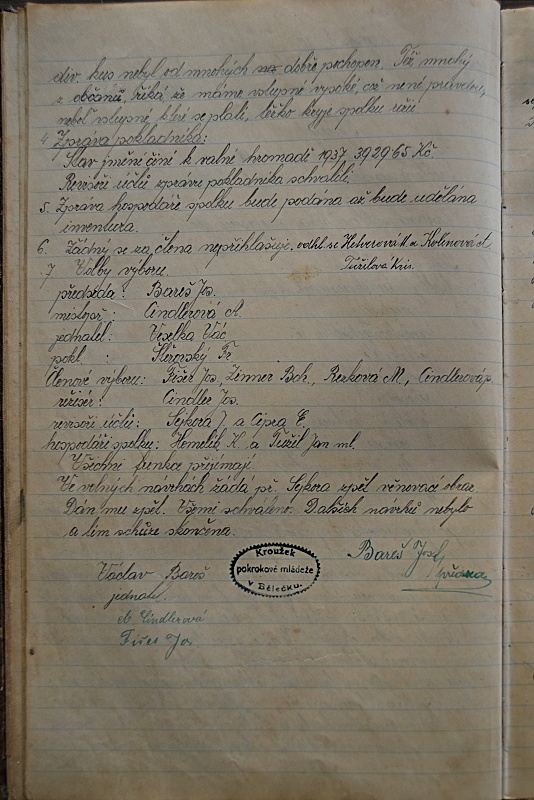 div. kus nebyl od mnohých dobře pochopen. Též mnohý
z občanů, říká, že máme vstupné vysoké, což není pravdou,
neboť vstupné, které se platí, těžko kryje spolku režii
4. Zpráva pokladníka:
Stav jmění činí k valné hromadě 1937 392965 Kč.
Revisoři účtů zprávu pokladníka schválili.
5. Zpráva hospodáře spolku bude podána až bude udělána
inventura.
6. Žádný se za člena nepřihlašuje, odhl. se a Kolínová A
7 Volby výboru. Tužilová Kris.
předseda: Bareš Jos.
místopř: Cindlerová A.
jednatel: Veselka Vác
pokl. : Štěrovský Fr.
Členové výboru: Fišer Jos, Zinner Boh., Rezková M., Cindlerová
režisér: Cindler Jos.
revisoři účtů: Sejkora J. a Cipra E.
hospodáři spolku: Hemelík K. a Tužil Jan ml.
Všichni funkce přijímají.
Ve volných návrhách žádá př. Sejkora zpět věnovací obraz.
Dán mu zpět. Všemi schváleno. Dalších navrhů nebylo
a tím schůze skončena.
Bareš Josef
předseda
Kroužek
pokrokové mládeže
v Bělečku.
Václav Bareš
jednatel.
A. Cindlerová
Fišer Jos